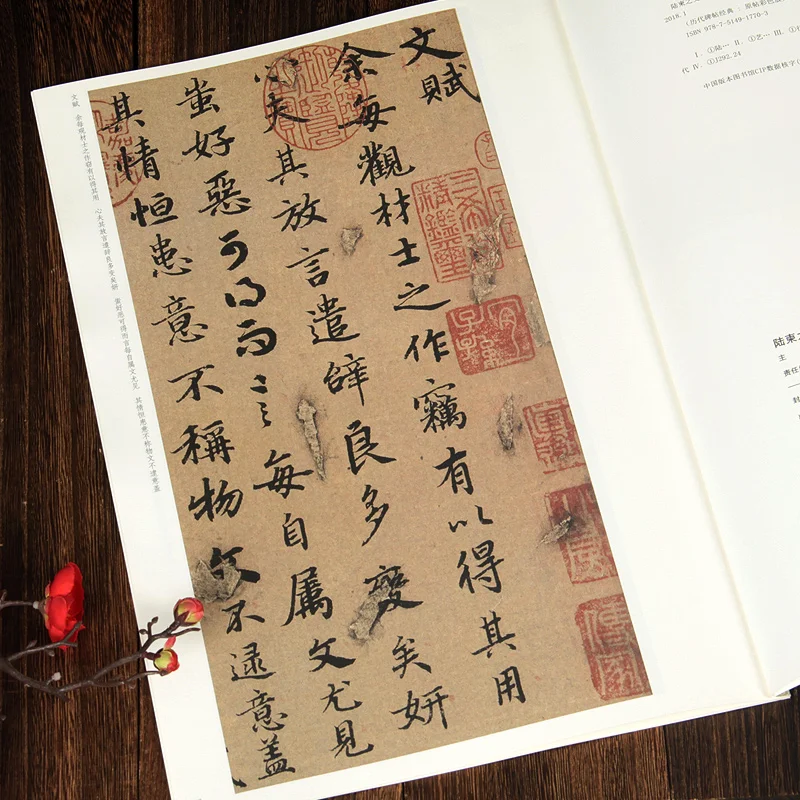 文賦
余每觀材士之作竊有以得其用
心夫其放言遣辭良多變矣妍
蚩好惡可得而言每自屬文尤見
其情恒患意不稱物文不逮意蓋
文賦 余每观材士之作窃有以得其用 心夫其放言遣辞良多变矣妍 蚩好恶可得而言每自属文尤见 其情恒患意不称物文不逮意盖
陆柬之文
2018.1（历代碑帖经典：原帖彩色放
ISBN 978-7-5149-1770-3
Ⅰ.①陆… Ⅱ.①艺… Ⅲ.①
代 Ⅳ.①J292.24
中国版本图书馆CIP数据核字（
陆柬之
主
责任
封